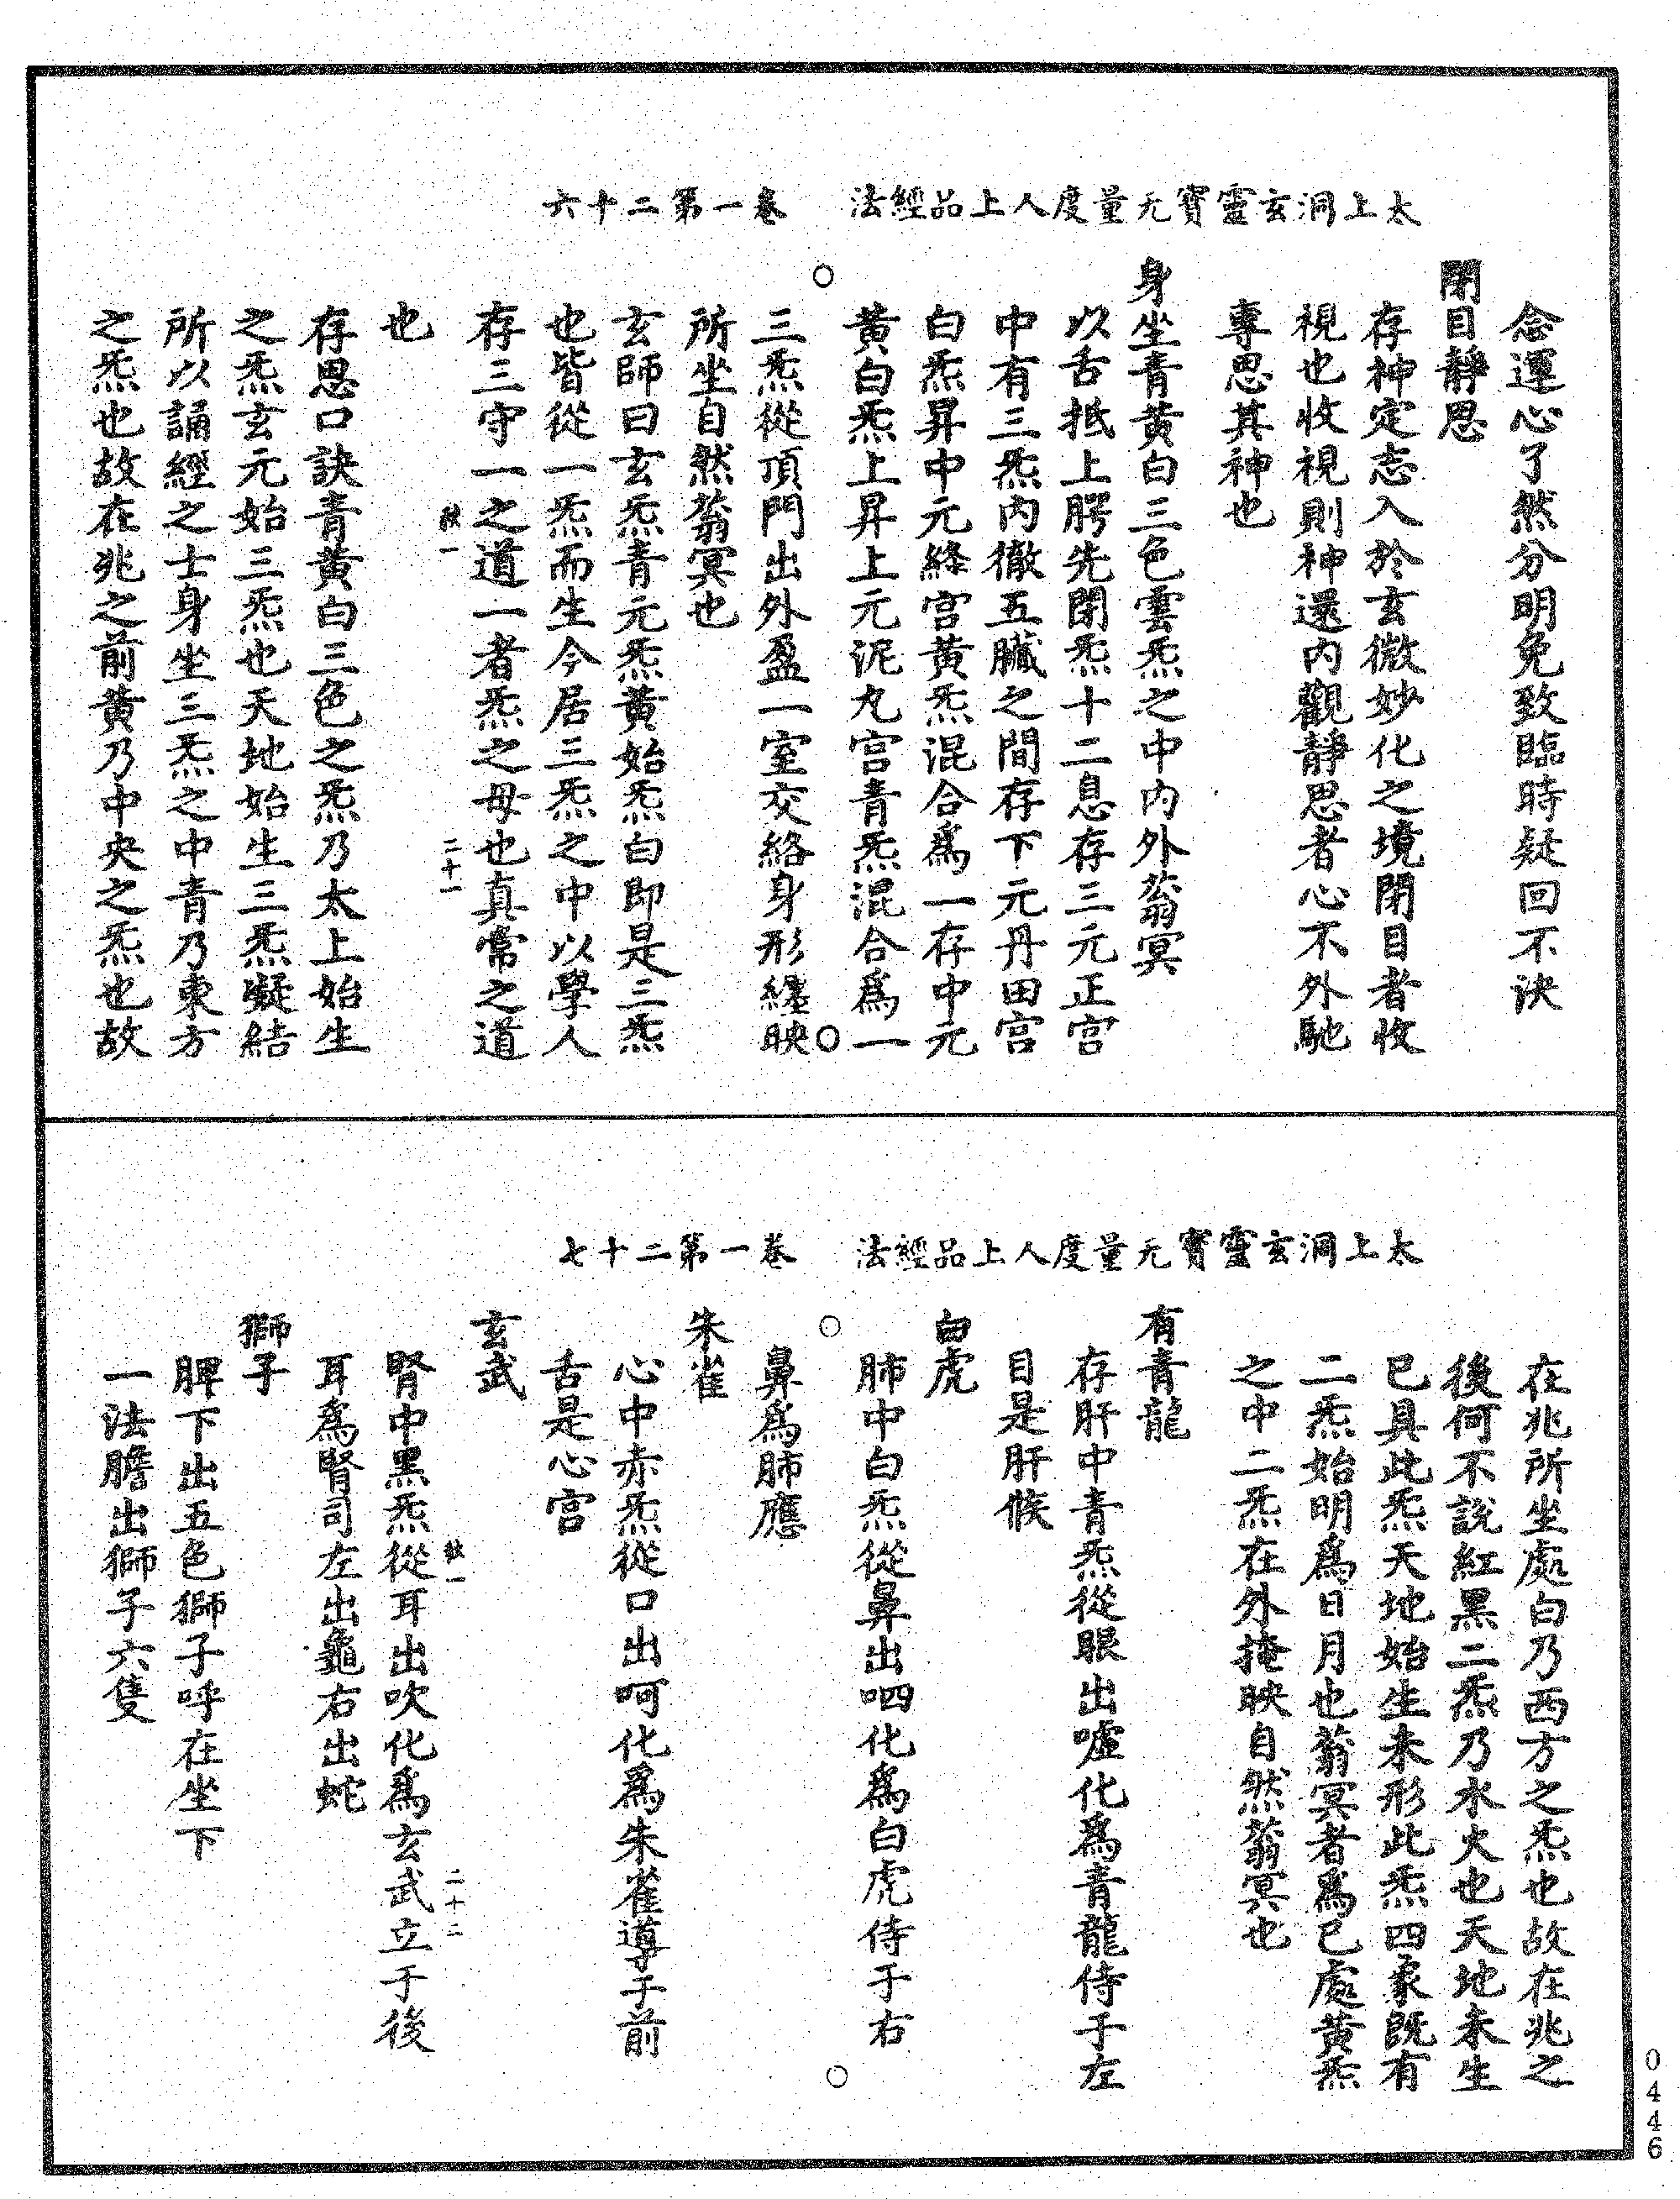 太上洞玄靈寶无量度人上品經法　卷一第二十六
念運心了然分明免致臨時疑回不決
閉目靜思
存神定志入於玄微妙化之境閉目者收
視也收視則神還内觀靜思者心不外馳
專思其神也
身坐青黃白三色雲炁之中内外蓊冥
以舌抵上腭先閉炁十二息存三元正宫
中有三炁内徹五臟之間存下元丹田宫
白炁昇中元絳宫黃炁混合爲一存中元
黃白炁上昇上元泥丸宫青炁混合爲一
三炁從頂門出外盈一室交絡身形纏映
所坐自然蓊冥也
玄師曰玄炁青元炁黃始炁白即是三炁
也皆從一炁而生今居三炁之中以學人
存三守一之道一者炁之母也真常之道
缺一　二十一
也
存思口訣青黃白三色之炁乃太上始生
之炁玄元始三炁也天地始生三炁凝結
所以誦經之士身坐三炁之中青乃東方
之炁也故在兆之前黃乃中央之炁也故
太上洞玄靈寶无量度人上品經法　卷一第二十七
在兆所坐處白乃西方之炁也故在兆之
後何不說紅黑二炁乃水火也天地未生
已具此炁天地始生未形此炁四象既有
二炁始明爲日月也蓊冥者爲已處黃炁
之中二炁在外掩映自然蓊冥也
有青龍
存肝中青炁從眼出噓化爲青龍侍于左
目是肝候
白虎
肺中白炁從鼻出呬化爲白虎侍于右
鼻爲肺應
朱雀
心中赤炁從口出呵化爲朱雀導于前
舌是心宫
玄武
缺一　二十二
腎中黑炁從耳出吹化爲玄武立于後
耳爲腎司左出龜右出蛇
獅子
脾下出五色獅子呼在坐下
一法膽出獅子六隻
0446